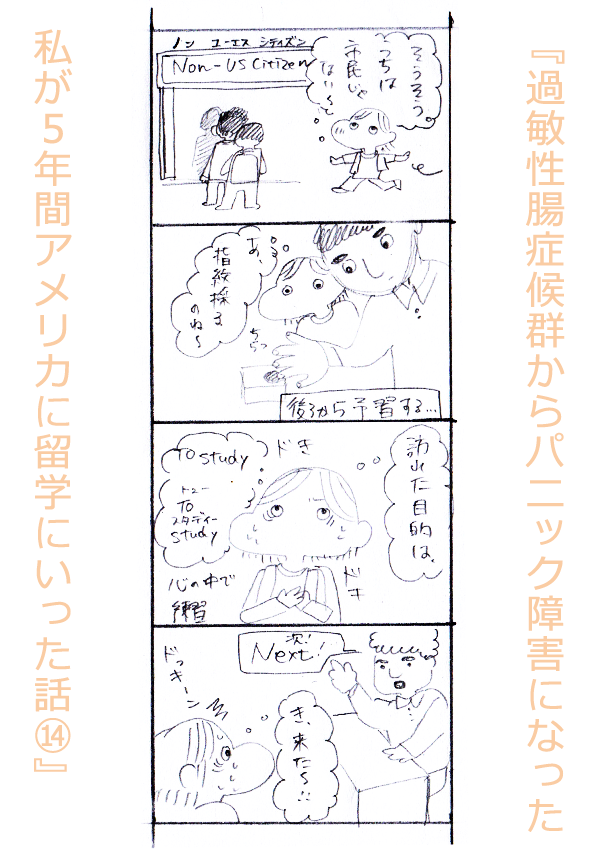 『過敏性腸症候群からパニック障害になった
私が5年間アメリカに留学にいった話⑭』
ノン ユーエス シティズン
Non-US Citizen
そうそう
こっちは
市民じゃ
ない〜と
あ、
指紋採る
のね〜
ちらっ
後ろから予習する…
訪れた目的は、
ドキ
To study
トゥー
To
スタディー
study
ドキ
心の中で
練習
次!
Next!
ドッキーン
き、来たら!!